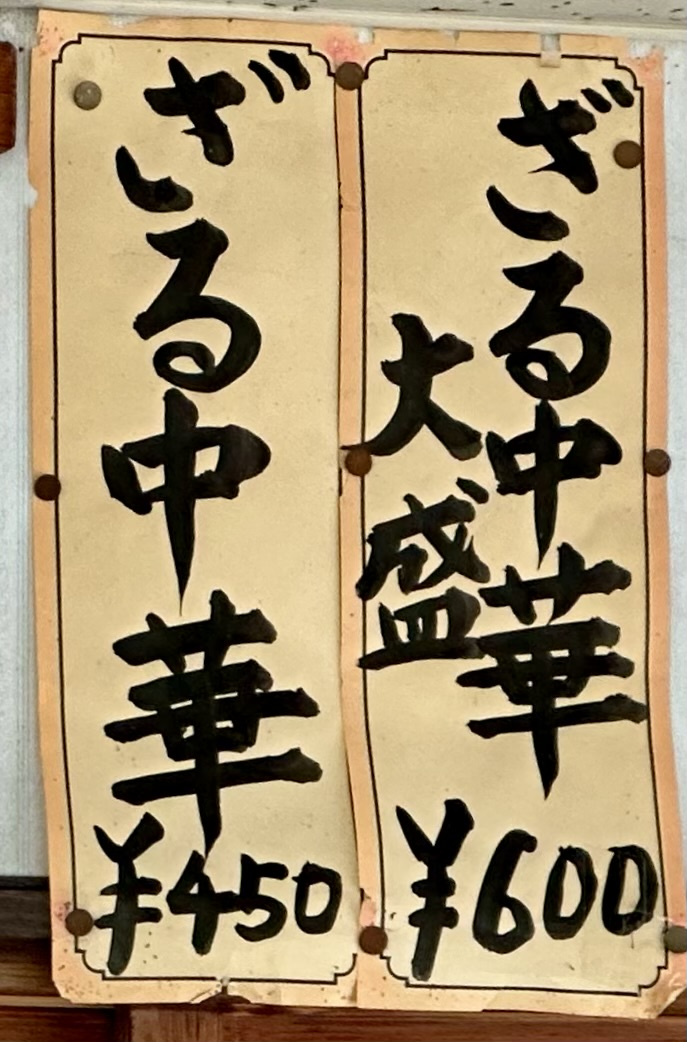 ざる中華
大盛
¥600
ざる中華
¥450